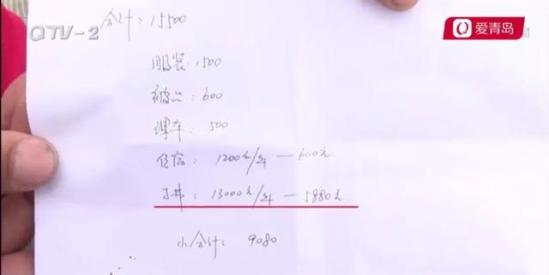 QTV-2
爱青岛
合计:15500
服装:500
被褥:600
课本:500
住宿:1200元/年 — 600元
学费:13000元/年 — 5880元
小合计:9080